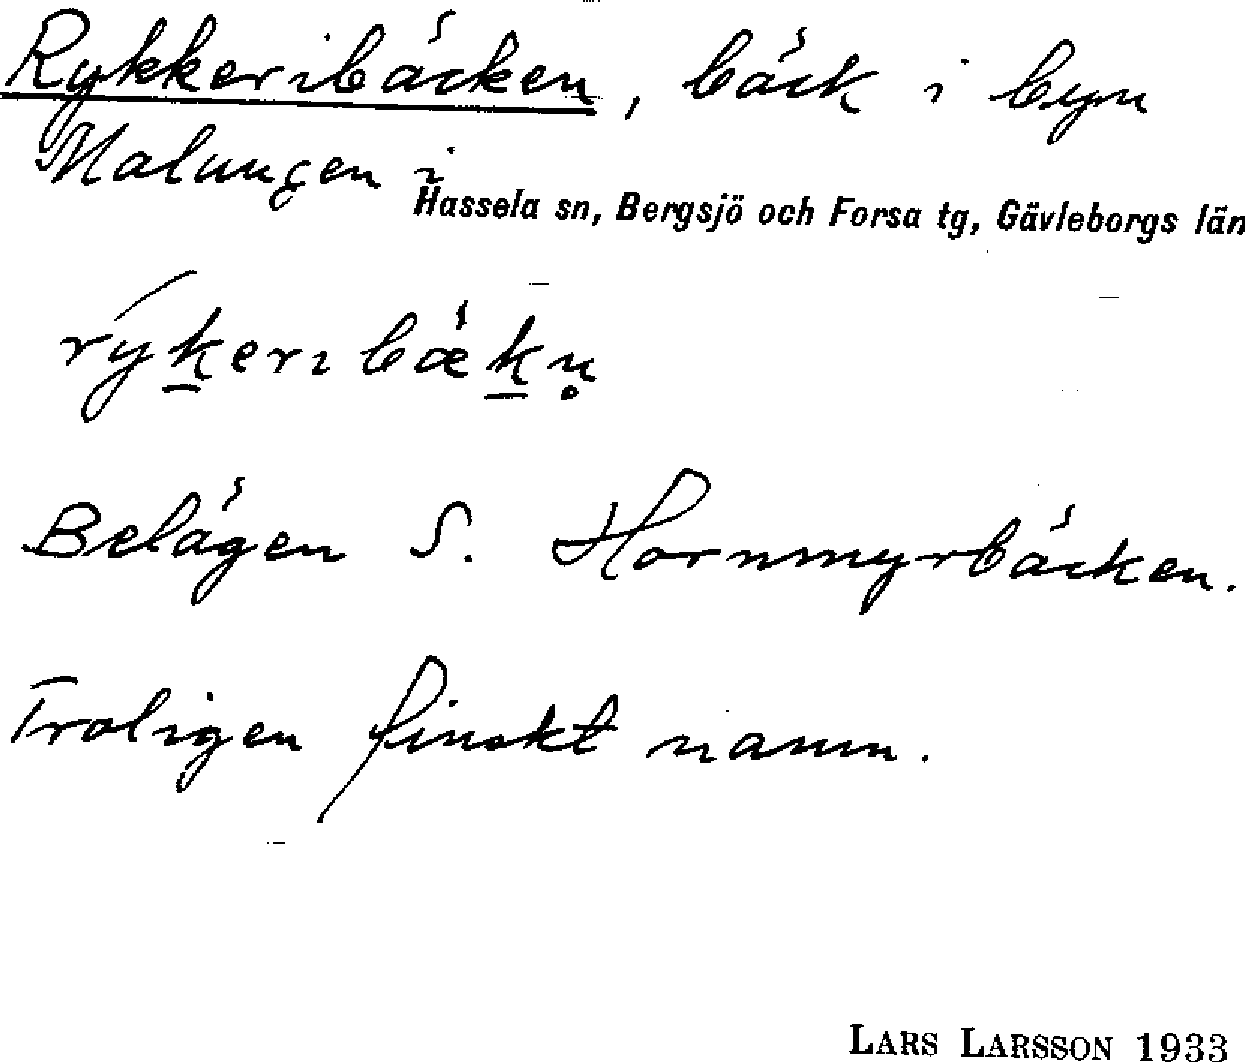 Rykkeribäcken, bäck i byn
Malungen i
Hassela sn, Bergsjö och Forsa tg, Gävleborgs län
rýk̲erıbæ̀k̲n̥
Belägen S. Hornmyrbäcken.
Troligen finskt namn.
LARS LARSSON 1933